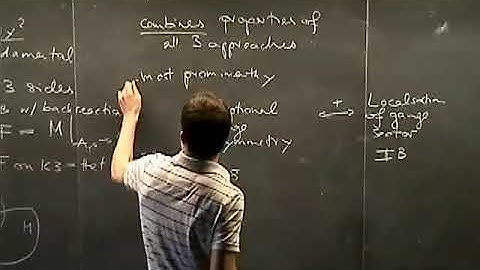 y²
damental
3 sides
w/ backreaction
F = M
F on K3 = Het
combines properties of
all 3 approaches
most prominently
M
+
Localisation
of gauge
sector
II B